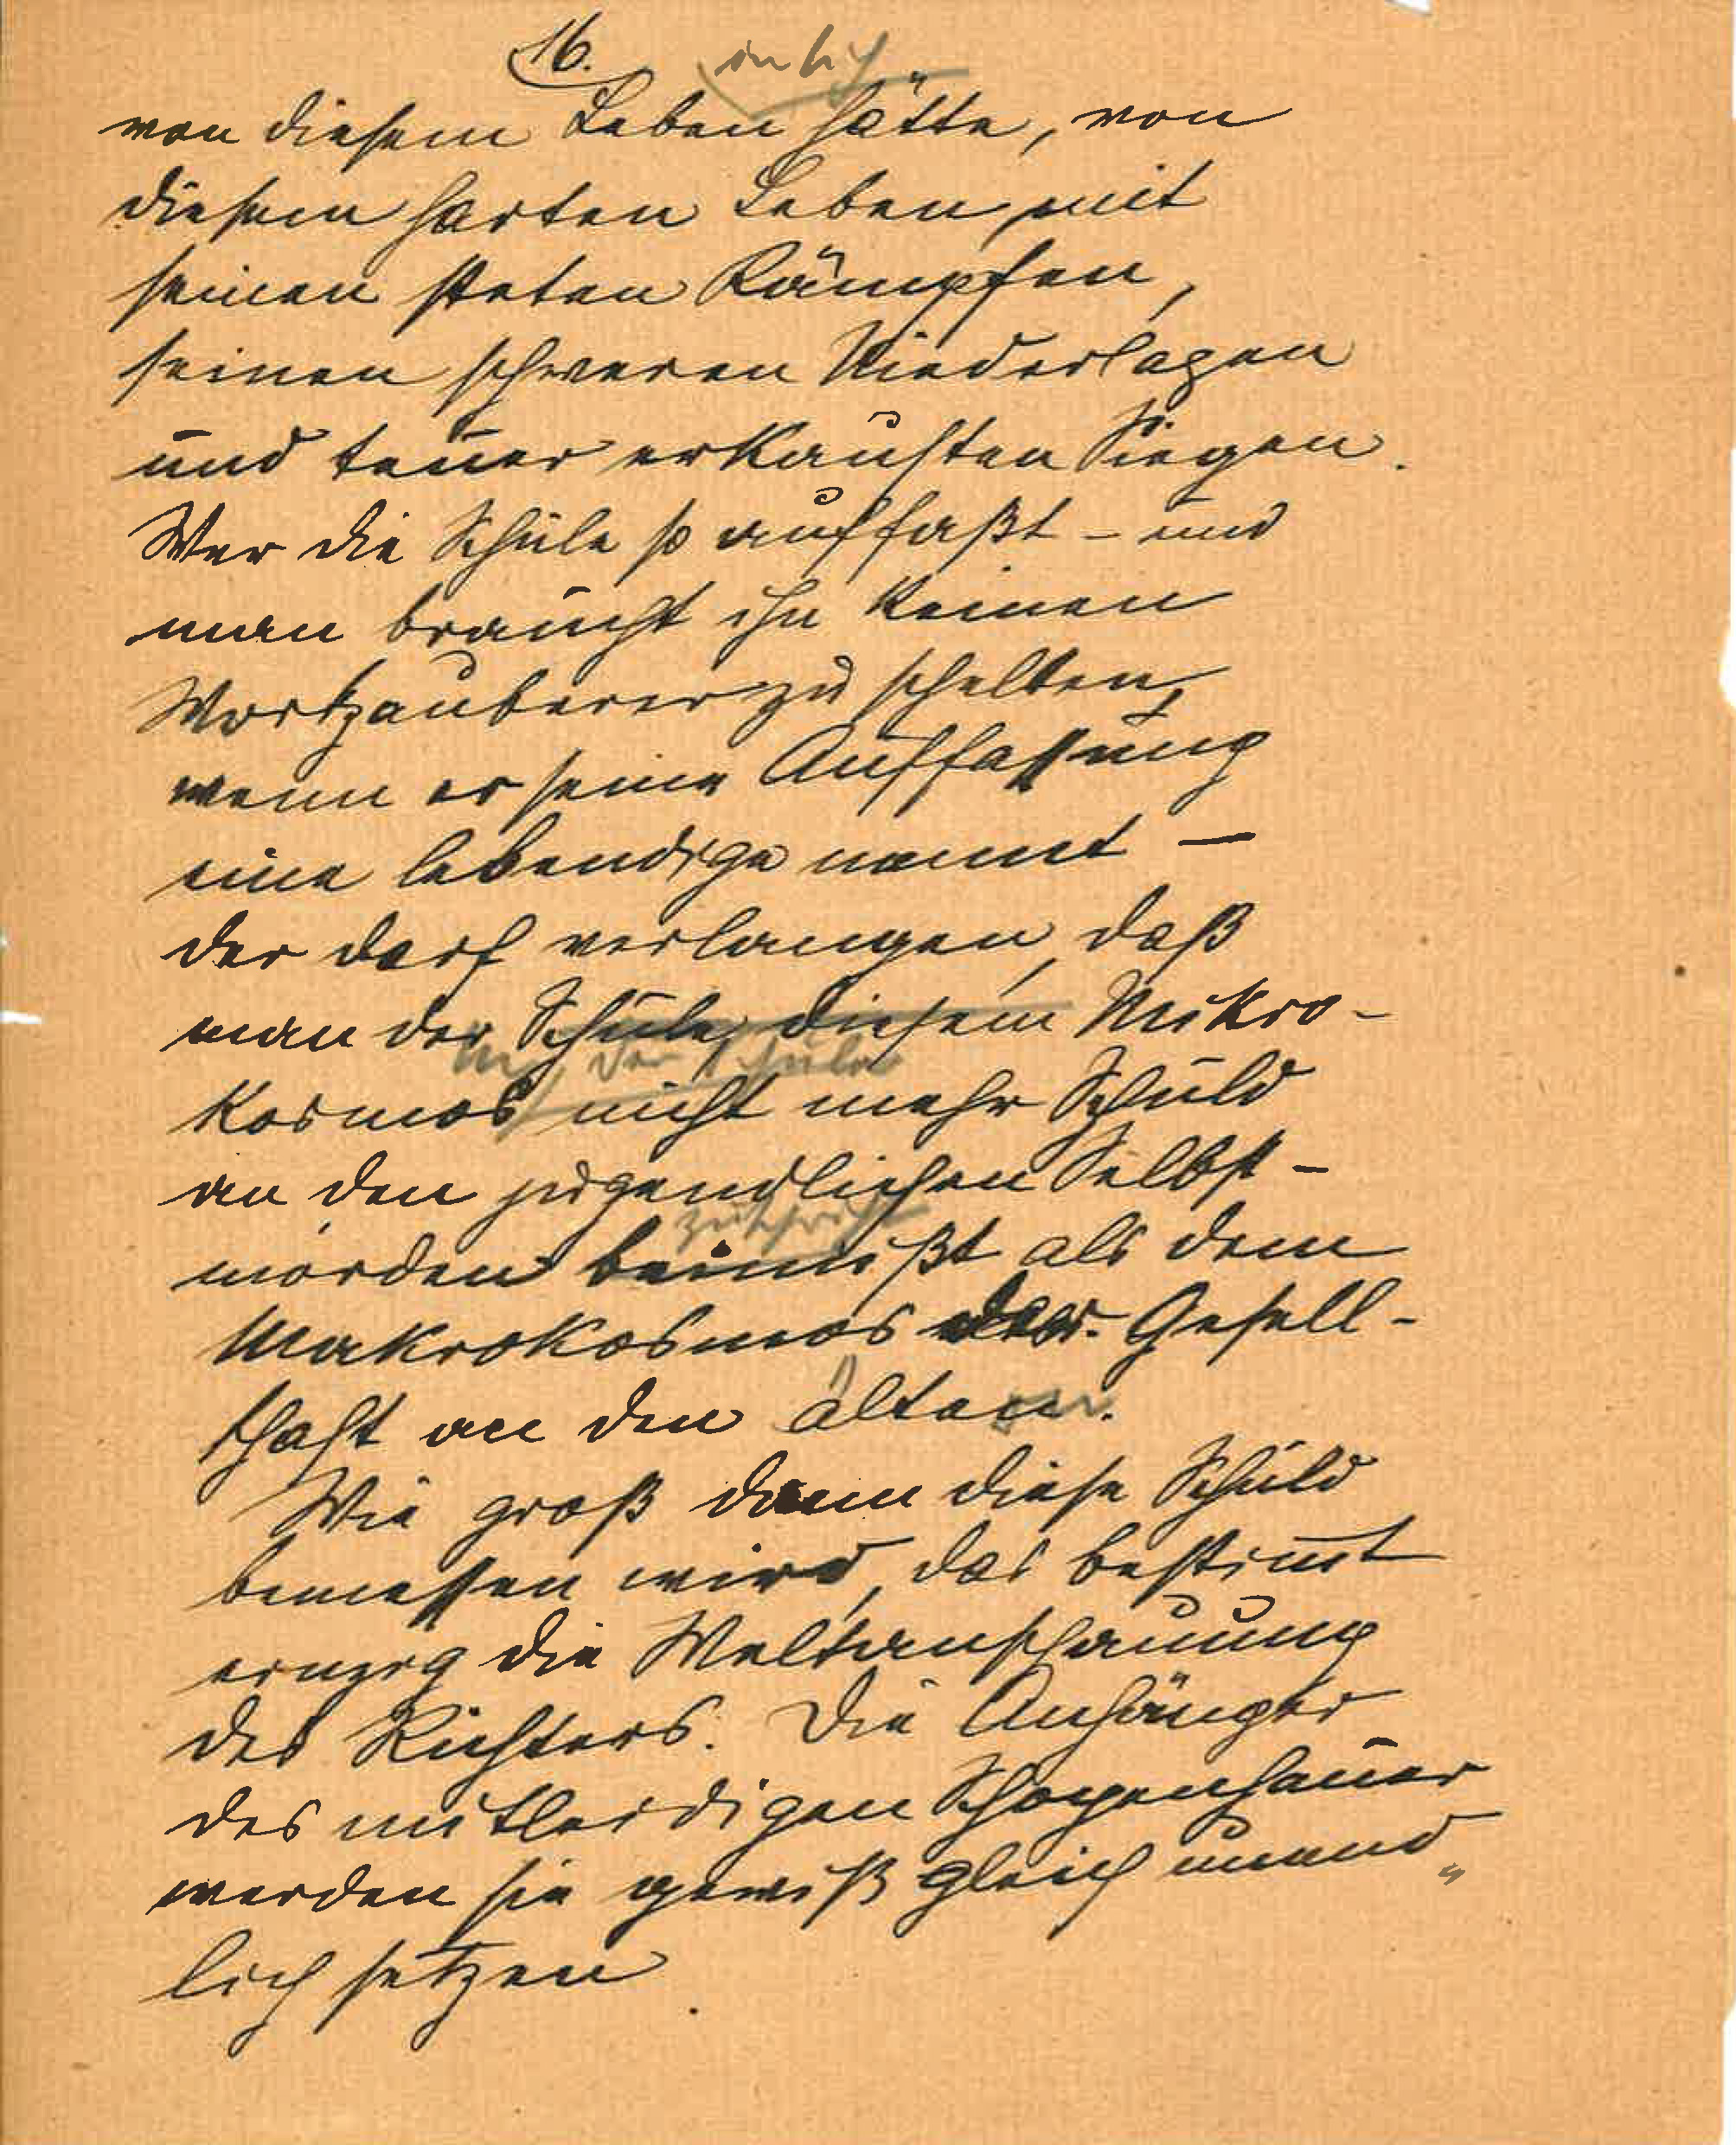 16.
von diesem Leben hätte, von
diesem harten Leben mit
seinen steten Kämpfen,
seinen schweren Niederlagen
und teuer erkauften Siegen.
Wer die Schule so auffaßt – und
man braucht ihn keinen
Wortzauberer zu schelten,
wenn er seine Auffassung
eine lebendige nennt –
der darf verlangen, daß
man der Schule, diesem Mikro-
der Schule
kosmos nicht mehr Schuld
an den jugendlichen Selbst-
zuschreibt
morden beimißt als dem
Makrokosmos der Gesell-
schaft an den älteren.
Wie groß dann diese Schuld
bemessen wird, das bestimt
einzig die Weltanschauung
des Richters. Die Anhänger
des mitleidigen Schopenhauer
werden sie gewiß gleich unend
lich setzen.